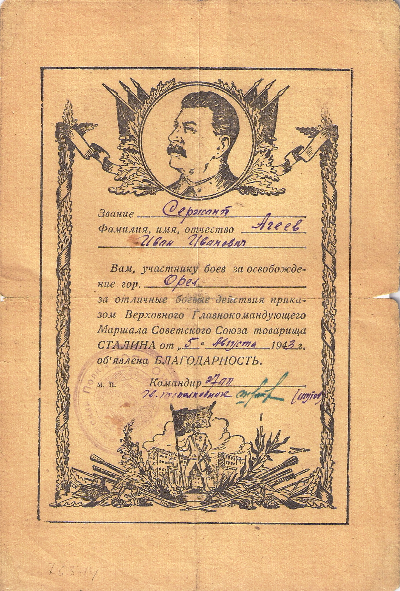 Звание Сержант
Фамилия, имя, отчество Агеев
Иван Иванович
Вам, участнику боев за освобожде-
ние гор. Орел
за отличные боевые действия прика-
зом Верховного Главнокомандующего
Маршала Советского Союза товарища
СТАЛИНА от 5 августа 1943 г.
об'явлена БЛАГОДАРНОСТЬ.
м. п. Командир